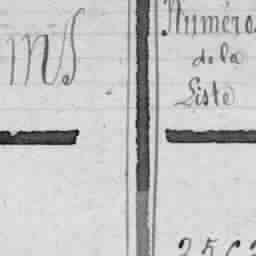 ms
Numéros
de la
Liste